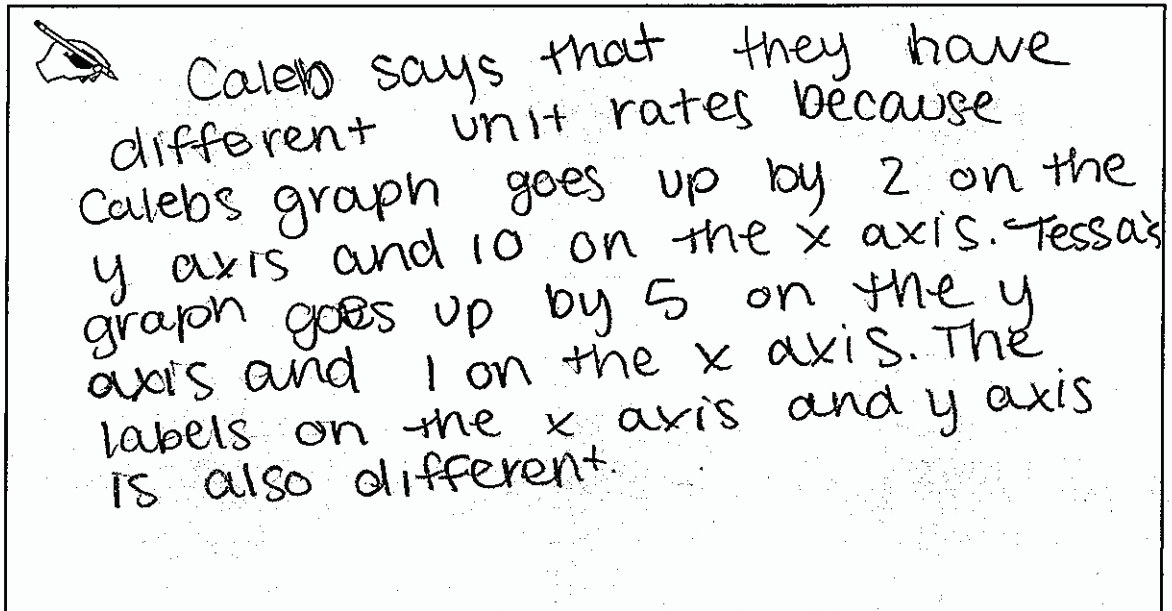 Caleb says that they have
different unit rates because
Calebs graph goes up by 2 on the
y axis and 10 on the x axis. Tessa's
graph goes up by 5 on the y
axis and 1 on the x axis. The
labels on the x axis and y axis
is also different.